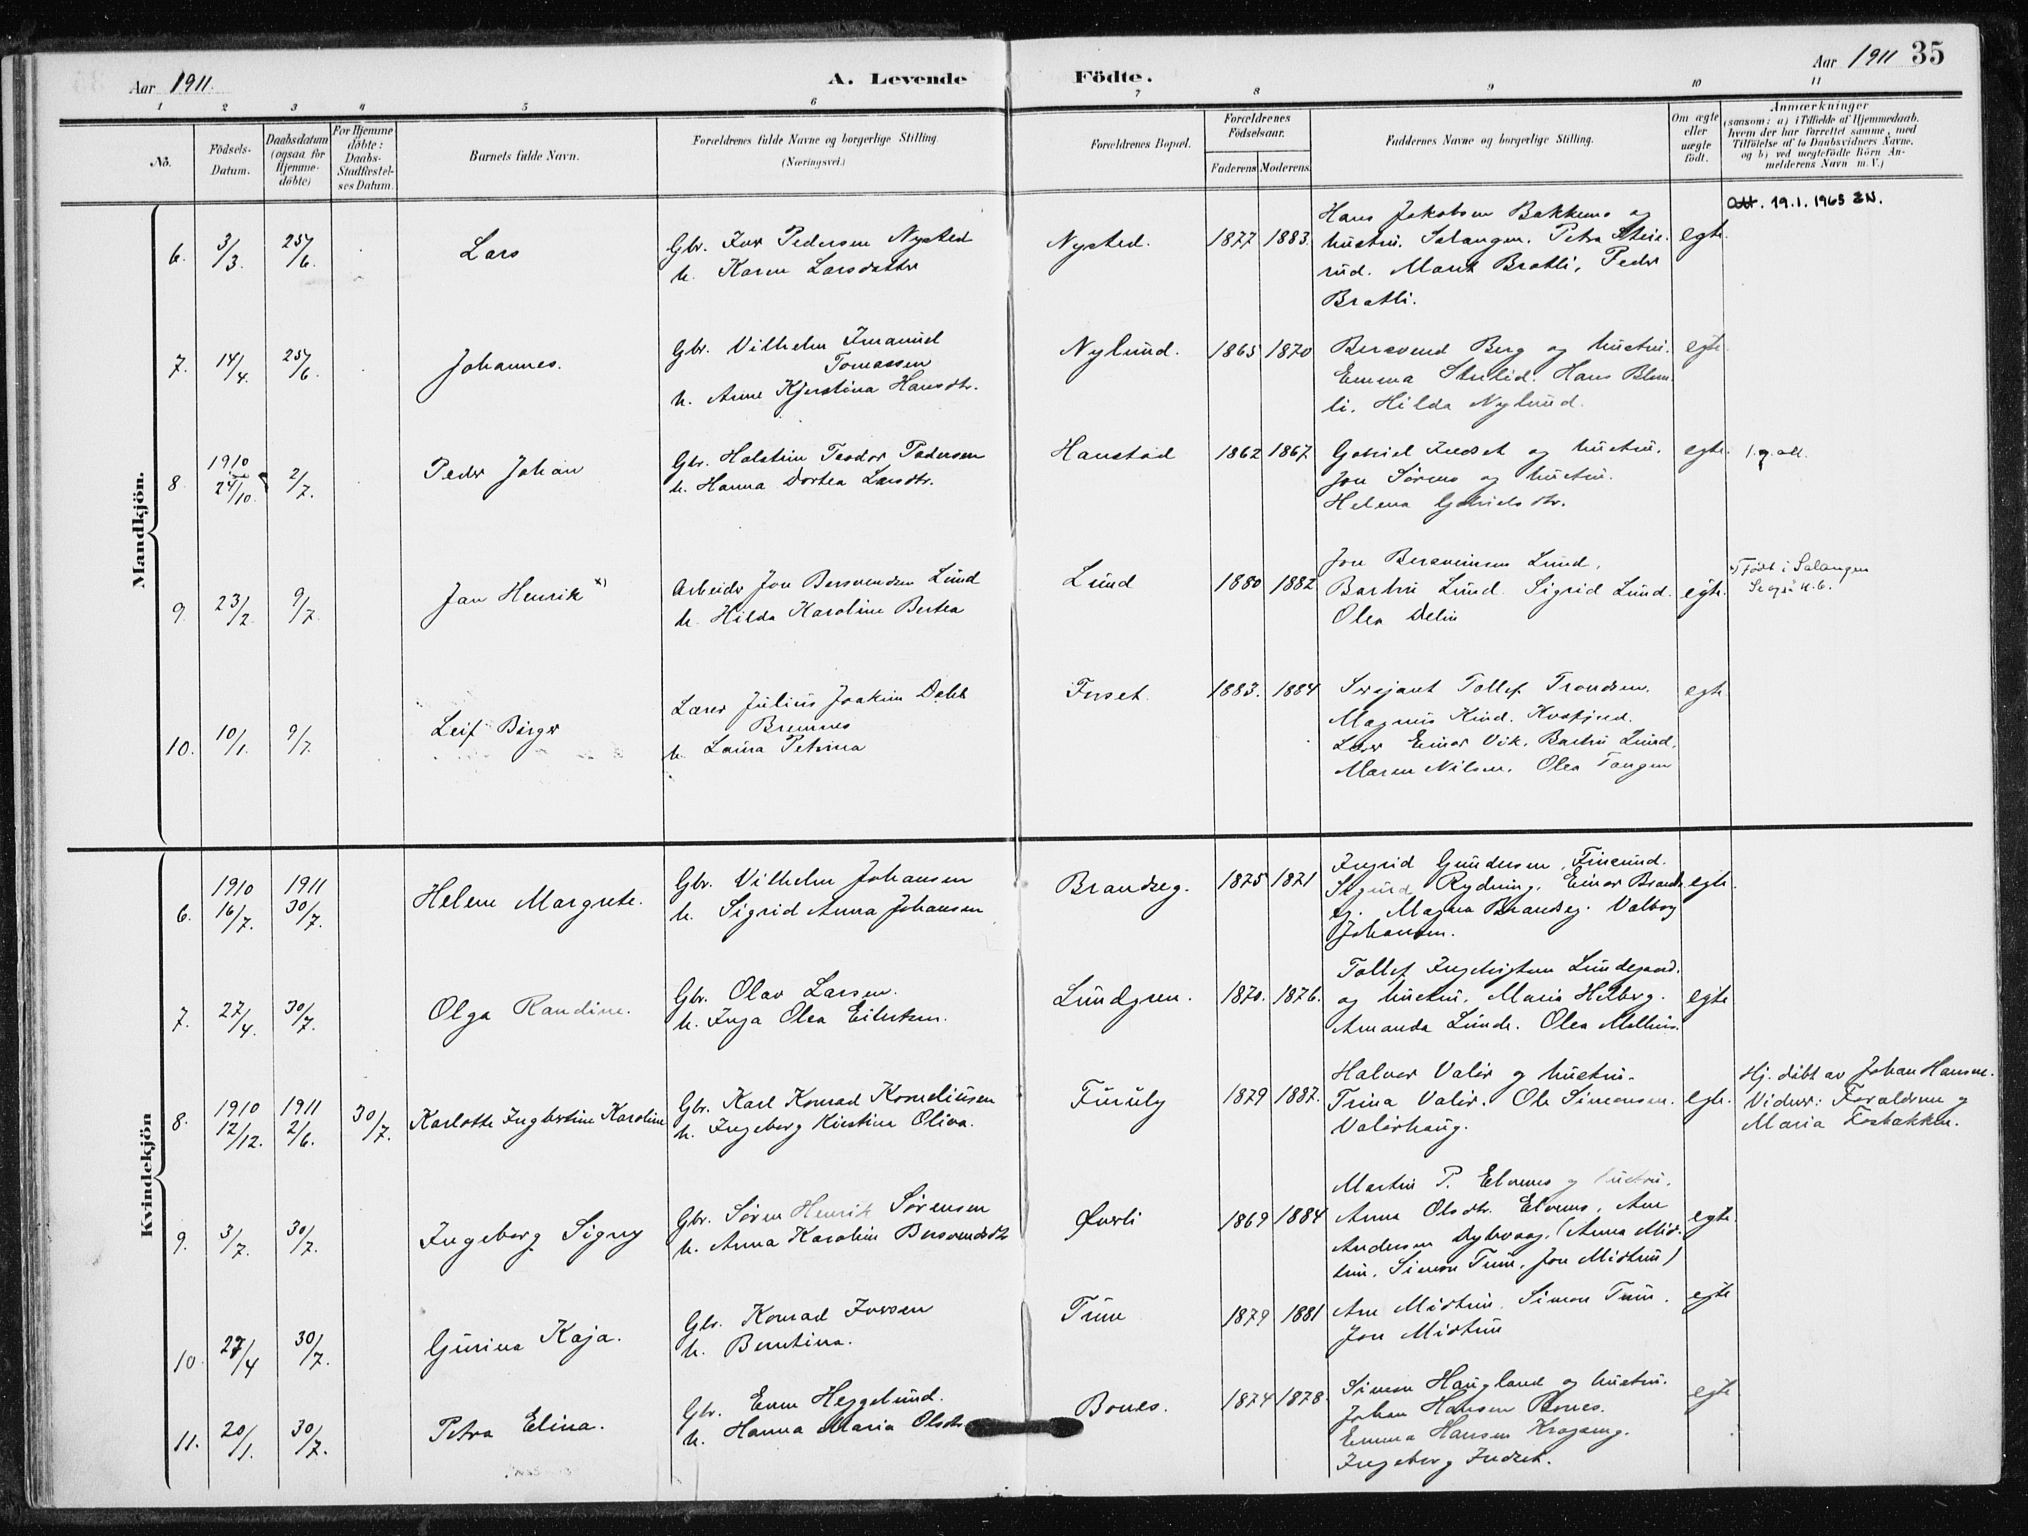 Aar 1911.
A. Levende Födte.
Aar 1911 35
1 2 3 4 5 6 7 8 9 10 11
No.
Födsels-
Datum.
Daabsdatum
(ogsaa for
Hjemme-
döbte)
For Hjemme
döbte:
Daabs-
Stadfæstel-
ses Datum.
Barnets fulde Navn.
Forældrenes fulde Navne og borgerlige Stilling
(Næringsvei.)
Forældrenes Bopæl.
Forældrenes
Födselsaar.
Faderens Moderens
Faddernes Navne og borgerlige Stilling.
Om ægte
eller
uægte
født.
Anmærkninger
(saasom: a) i Tilfælde af Hjemmedaab,
hvem der har forrettet samme, med
Tilföielse af to Daabsvidners Navne,
og b) ved uægtefödte Börn An-
melderens Navn m. V.)
Mandkjön.
6. 3/3. 25/6. Lars
Gbr. Ivar Pedersen Nysted
h. Karen Larsdatter
Nysted. 1877 1883.
Hans Jakobsen Bakkemo og
hustru. Salangen. Petra
rud. Marit Bratli, Peder
Bratli.
egte.
Att. 19.1.1965 EN.
7. 14/4. 25/6. Johannes.
Gbr. Vilhelm Imanuel
Tomassen
h. Anne Kjerstina Hansdtr.
Nylund. 1865 1870
Bersvend Berg og hustru.
Emma Strlid. Hans Blom-
li, Hilda Nylund.
egte.
8. 1910 24/10. 2/7. Peder Johan
Gbr. Halstein Teodor Pedersen
h. Hanna Dortea Larsdtr.
Hanstad 1862 1867
Gabriel Indset og hustru.
Jon Sørmo og hustru.
Helena Gabrielsdtr.
egte. 1.g.att.
9. 23/2. 9/7. Jan Henrik x)
Arbeider Jon Bersvendsen Lund
h. Hilda Karoline Bertea
Lund 1880 1882
Jon Bersveinsen Lund,
Bartru Lund. Sigrid Lund.
Olea Delin
egte.
x) Født i Salangen
Se også K.6.
10. 10/1. 9/7. Leif Birger
Lærer Julius Joakim Dahl
Bremnes
h. Laura Petrina
Fosset. 1883. 1884
Sersjant Tollef Trondsen.
Magnus Kind. Kvæfjord.
Lærer Einar Vik. Bartru Lund.
Maren Nilsen. Olea Tangen
egte
Kvindekjön
6. 1910 16/7. 1911 30/7. Helene Margrete.
Gbr. Vilhelm Johansen
h. Sigrid Anna Johansen
Brandseg. 1875 1871
Ingrid Gundersen, Finsund.
Sigurd Rydning. Einar Brands-
eg. Magna Brandseg. Valborg
Johansen.
egte.
7. 27/4. 30/7. Olga Randine.
Gbr. Olav Larsen.
h. Inga Olea Eilertsen.
Lundgren. 1870. 1876.
Tollef Ingebrigtsen Lundegaard.
og hustru. Maria Helberg.
Amanda Lunde. Olea Mathisen.
egte
8. 1910 12/12. 1911 2/6. 30/7. Karlotte Ingbertine Karoline
Gbr. Karl Konrad Korneliussen
h. Ingeborg Kirstina Oliva.
Furuly 1879 1887.
Halvor Valør og hustru.
Trina Valør. Ole Simonsen.
Valørhaug.
egte.
Hj. døbt av Johan Hansen.
Vidner: Forældrene og
Maria Fosbakken.
9. 3/7. 30/7. Ingeborg Signy
Gbr. Søren Henrik Sørensen
h. Anna Karoline Bersvendsdtr
Øvrli 1869 1884
Martin P. Elvenes og hustru.
Anna Olsdtr. Elvenes, Ane
Andersen Dybvaag. (Anna Mid-
tun. Simon Tun, Jon Midtun)
egte.
10. 27/4 30/7. Gurina Kaja.
Gbr. Konrad Iversen
h. Berntina.
Tun 1879 1881
Ane Midtun. Simon Tun.
Jon Midtun
egte
11. 20/1. 30/7. Petra Elina.
Gbr. Even Heggelund.
h. Hanna Maria Olsdtr
Bones. 1874 1878.
Simon Haugland og hustru.
Johan Hansen Bones.
Emma Hansen Krogseng.
Ingeborg Indset.
egte